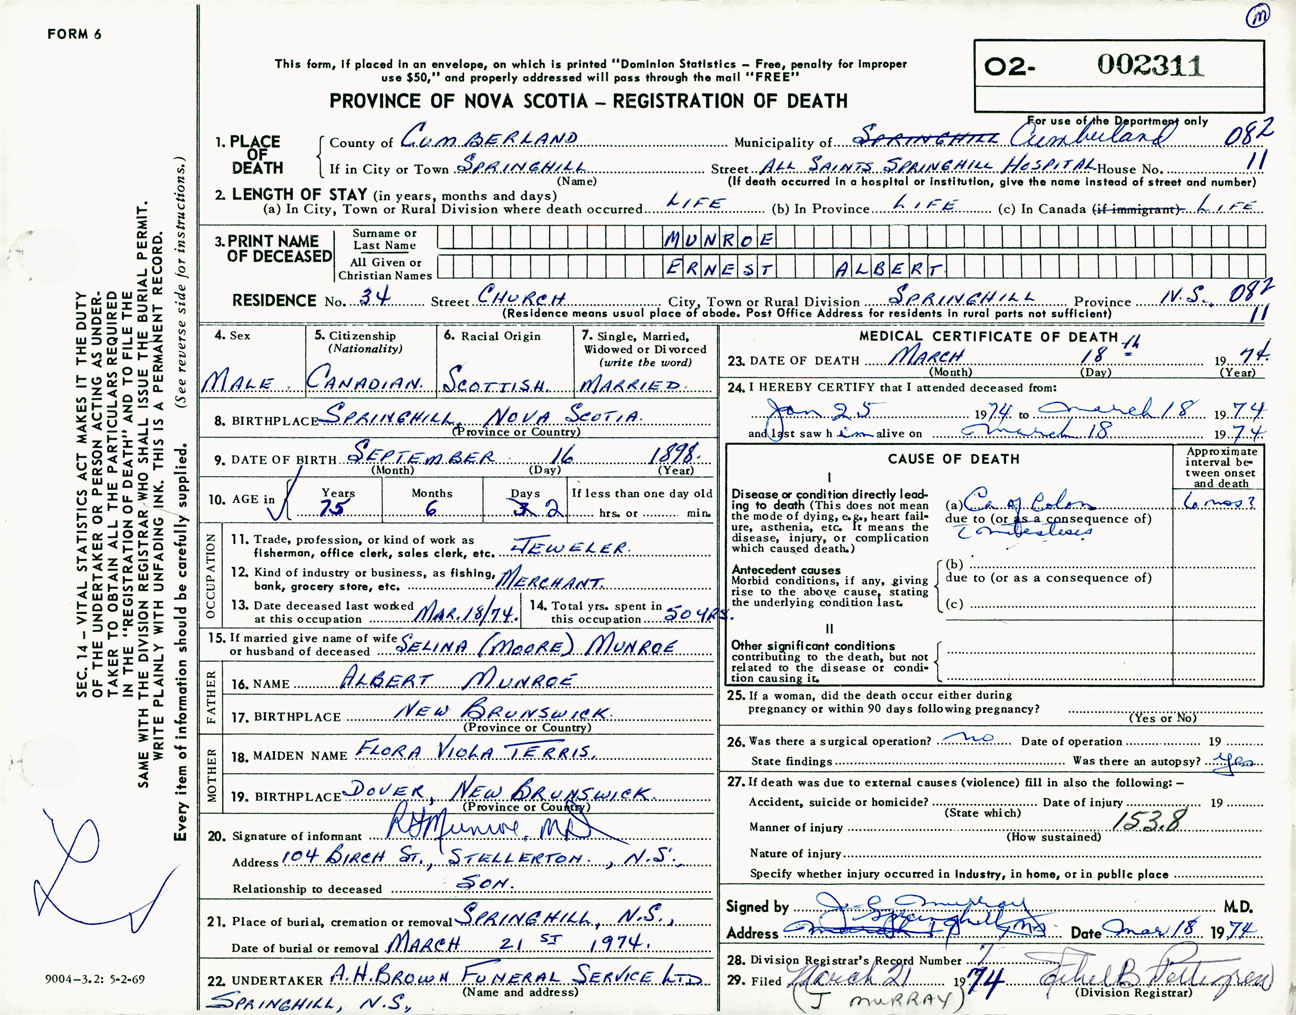 M
FORM 6
O2- 002311
For use of the Department only
This form, if placed in an envelope, on which is printed "Dominion Statistics – Free, penalty for improper
use $50," and properly addressed will pass through the mail "FREE"
PROVINCE OF NOVA SCOTIA – REGISTRATION OF DEATH
SEC. 14 – VITAL STATISTICS ACT MAKES IT THE DUTY
OF THE UNDERTAKER OR PERSON ACTING AS UNDER-
TAKER TO OBTAIN ALL THE PARTICULARS REQUIRED
IN THE "REGISTRATION OF DEATH" AND TO FILE THE
SAME WITH THE DIVISION REGISTRAR WHO SHALL ISSUE THE BURIAL PERMIT.
WRITE PLAINLY WITH UNFADING INK. THIS IS A PERMANENT RECORD.
Every item of information should be carefully supplied. (See reverse side for instructions.)
1. PLACE OF DEATH
County of CUMBERLAND Municipality of SPRINGHILL Cumberland 082
If in City or Town SPRINGHILL Street ALL SAINTS SPRINGHILL HOSPITAL House No. 11
(Name) (If death occurred in a hospital or institution, give the name instead of street and number)
2. LENGTH OF STAY (in years, months and days)
(a) In City, Town or Rural Division where death occurred LIFE (b) In Province LIFE (c) In Canada (if immigrant) LIFE
3. PRINT NAME OF DECEASED
Surname or Last Name MUNROE
All Given or Christian Names ERNEST ALBERT
RESIDENCE No. 34 Street CHURCH City, Town or Rural Division SPRINGHILL Province N.S. 082
(Residence means usual place of abode. Post Office Address for residents in rural parts not sufficient) 11
4. Sex MALE
5. Citizenship (Nationality) CANADIAN
6. Racial Origin SCOTTISH
7. Single, Married, Widowed or Divorced (write the word) MARRIED
8. BIRTHPLACE SPRINGHILL, NOVA SCOTIA
(Province or Country)
9. DATE OF BIRTH SEPTEMBER 16 1898
(Month) (Day) (Year)
10. AGE in Years 75 Months 6 Days 3 2 If less than one day old hrs. or min.
OCCUPATION
11. Trade, profession, or kind of work as JEWELER
fisherman, office clerk, sales clerk, etc.
12. Kind of industry or business, as fishing, MERCHANT
bank, grocery store, etc.
13. Date deceased last worked at this occupation MAR. 18/74 14. Total yrs. spent in this occupation 50 YRS.
15. If married give name of wife or husband of deceased SELINA (MOORE) MUNROE
FATHER
16. NAME ALBERT MUNROE
17. BIRTHPLACE NEW BRUNSWICK
(Province or Country)
MOTHER
18. MAIDEN NAME FLORA VIOLA TERRIS
19. BIRTHPLACE DOVER, NEW BRUNSWICK
(Province or Country)
20. Signature of informant RH Munroe, MD
Address 104 BIRCH ST., STELLERTON, N.S.
Relationship to deceased SON.
21. Place of burial, cremation or removal SPRINGHILL, N.S.,
Date of burial or removal MARCH 21 ST 1974.
22. UNDERTAKER A.H. BROWN FUNERAL SERVICE LTD
(Name and address)
SPRINGHILL, N.S,
9004–3.2: 5-2-69
MEDICAL CERTIFICATE OF DEATH
23. DATE OF DEATH MARCH 18th 1974
(Month) (Day) (Year)
24. I HEREBY CERTIFY that I attended deceased from:
Jan 25 1974 to March 18 1974
and last saw h im alive on March 18 1974
CAUSE OF DEATH
Approximate interval between onset and death
I
Disease or condition directly lead-
ing to death (This does not mean
the mode of dying, e.g., heart fail-
ure, asthenia, etc. It means the
disease, injury, or complication
which caused death.)
(a) Ca of Colon 6 mos?
due to (or as a consequence of)
Antecedent causes
Morbid conditions, if any, giving
rise to the above cause, stating
the underlying condition last.
(b)
due to (or as a consequence of)
(c)
II
Other significant conditions
contributing to the death, but not
related to the disease or condi-
tion causing it.
25. If a woman, did the death occur either during
pregnancy or within 90 days following pregnancy?
(Yes or No)
26. Was there a surgical operation? no Date of operation 19
State findings Was there an autopsy? yes
27. If death was due to external causes (violence) fill in also the following: –
Accident, suicide or homicide? Date of injury 19
(State which)
Manner of injury 153.8
(How sustained)
Nature of injury
Specify whether injury occurred in industry, in home, or in public place
Signed by J. C. Murray M.D.
Address Springhill, NS Date Mar 18 1974
28. Division Registrar's Record Number 7
29. Filed March 21 1974 Ethel B Pettigrew
(Division Registrar)
(J MURRAY)